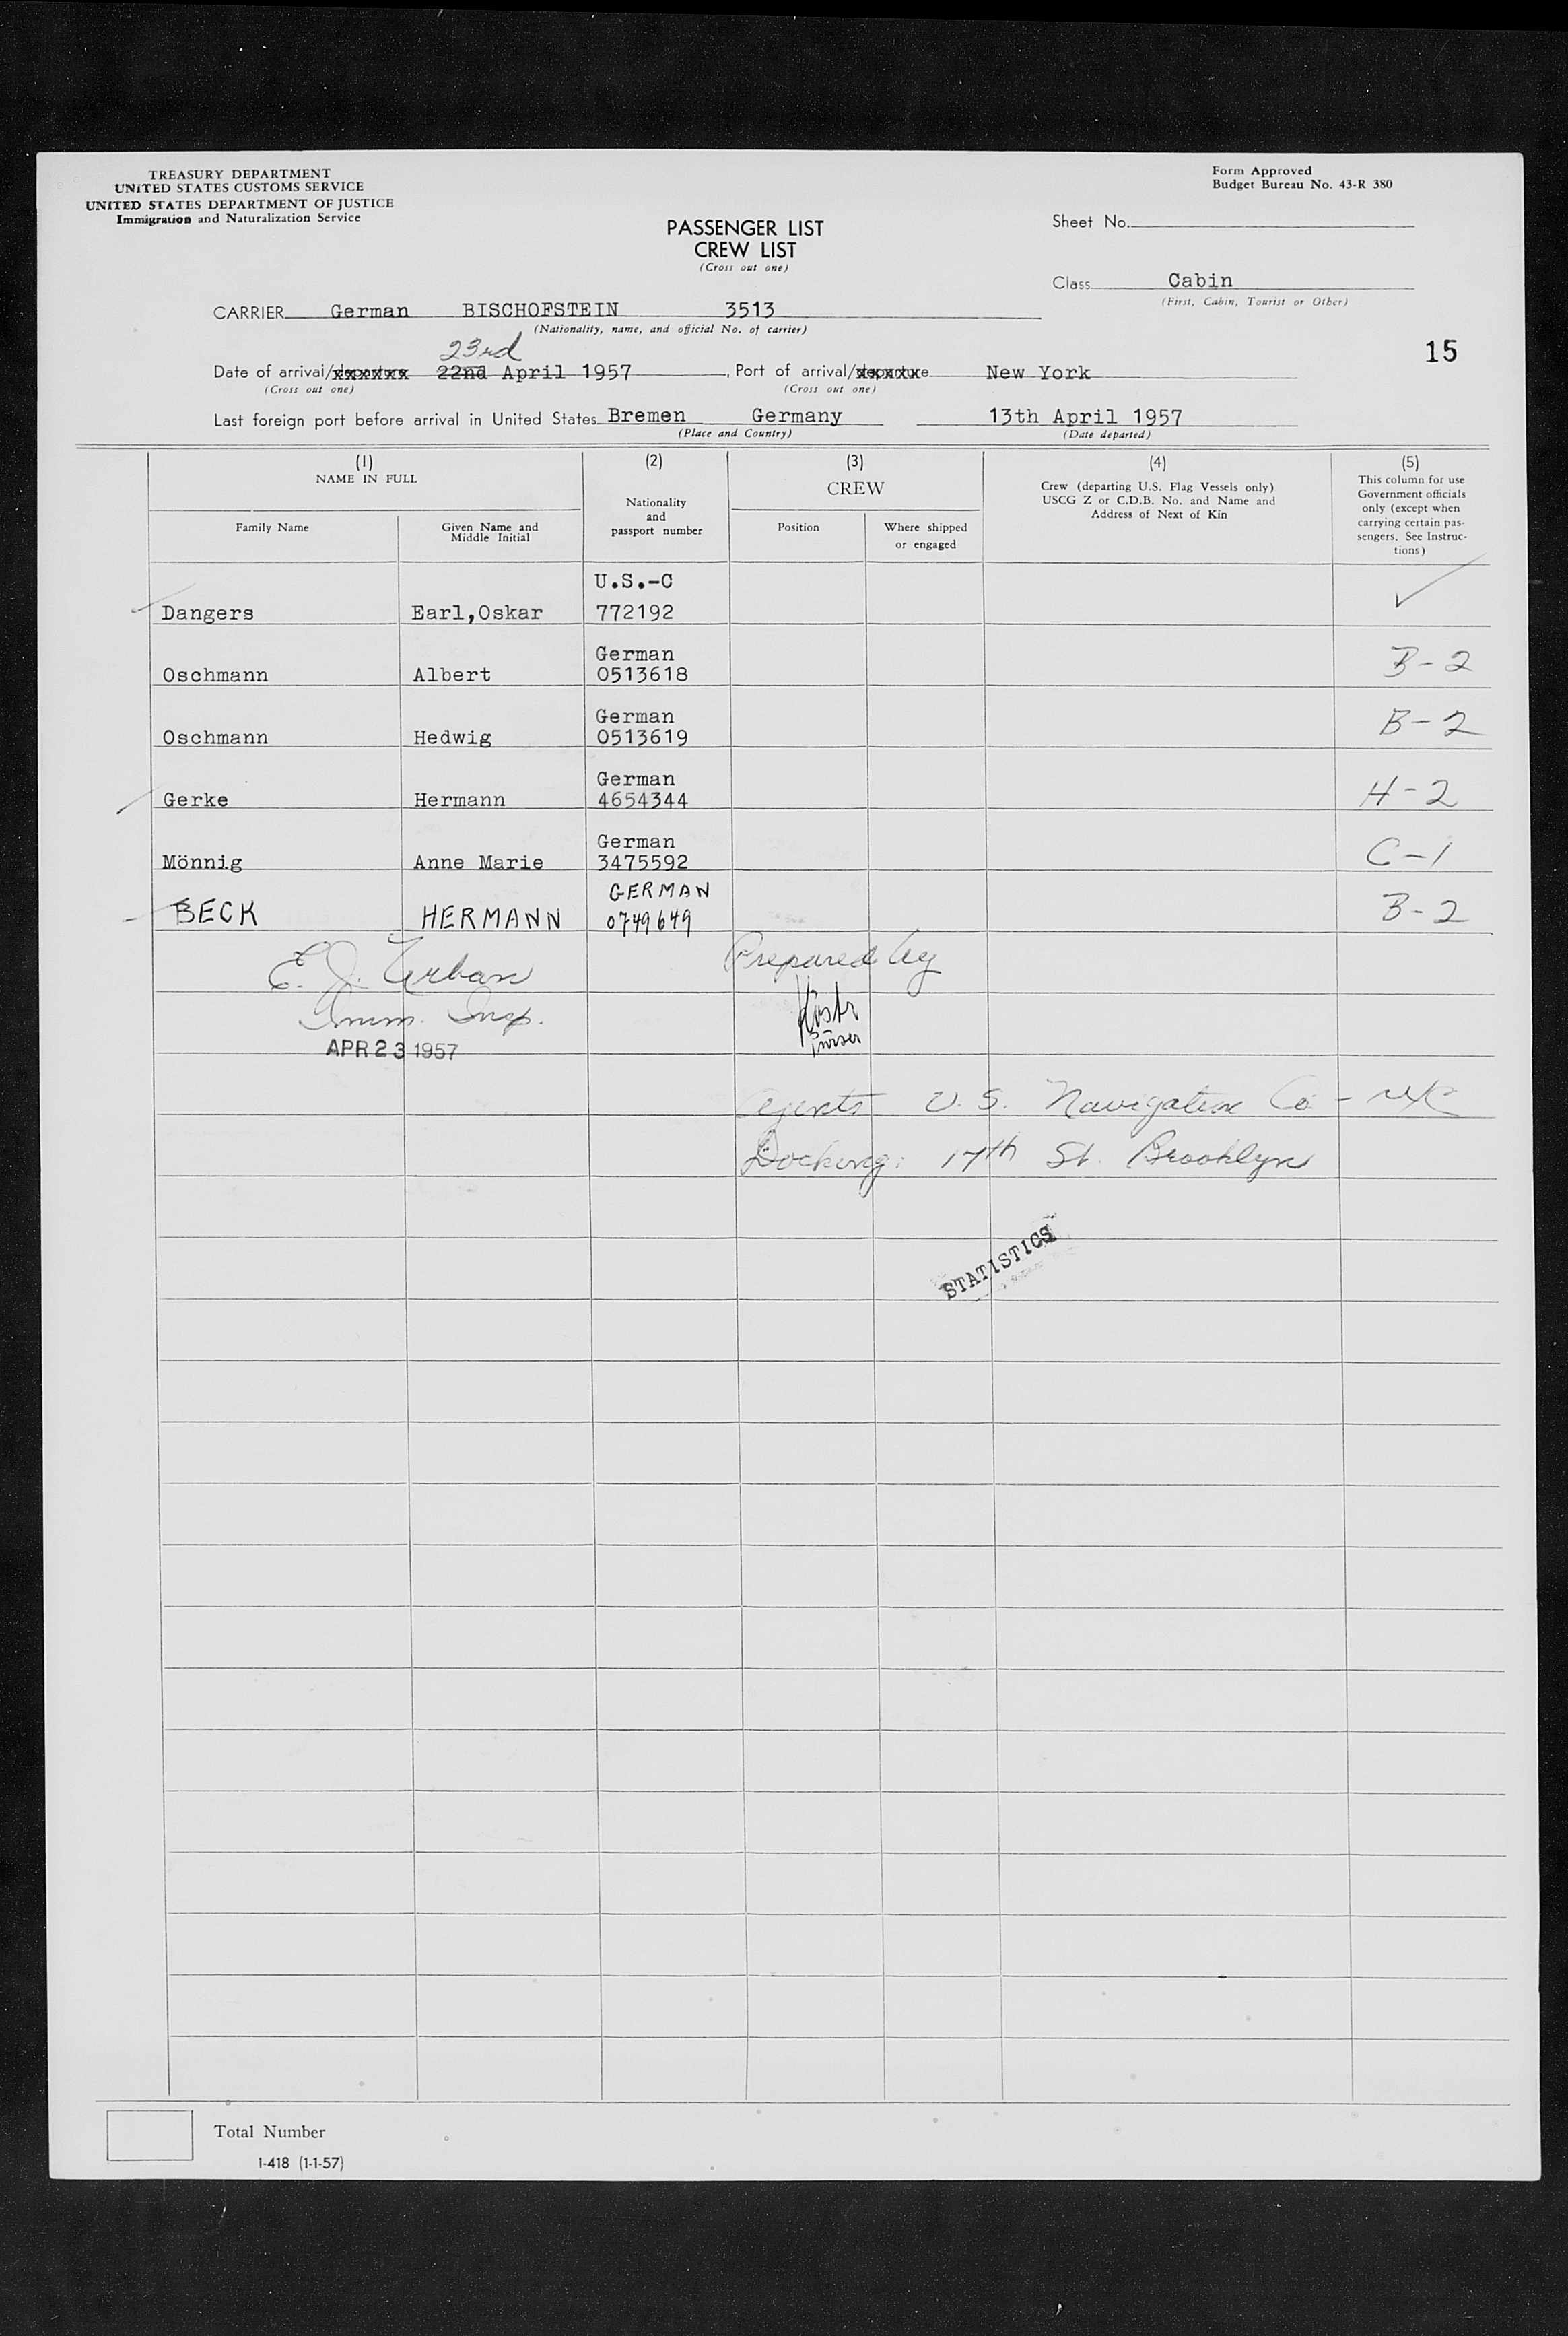 TREASURY DEPARTMENT
UNITED STATES CUSTOMS SERVICE
UNITED STATES DEPARTMENT OF JUSTICE
Immigration and Naturalization Service
Form Approved
Budget Bureau No. 43-R 380
PASSENGER LIST
CREW LIST
(Cross out one)
Sheet No.
Class Cabin
(First, Cabin, Tourist or Other)
CARRIER German BISCHOFSTEIN 3513
(Nationality, name, and official No. of carrier)
15
23rd
Date of arrival/ 22nd April 1957, Port of arrival/ New York
(Cross out one) (Cross out one)
Last foreign port before arrival in United States Bremen Germany 13th April 1957
(Place and Country) (Date departed)
(1) (2) (3) (4) (5)
NAME IN FULL
Family Name
Given Name and
Middle Initial
Nationality
and
passport number
CREW
Position
Where shipped
or engaged
Crew (departing U.S. Flag Vessels only)
USCG Z or C.D.B. No. and Name and
Address of Next of Kin
This column for use
Government officials
only (except when
carrying certain pas-
sengers. See Instruc-
tions)
U.S.-C
Dangers Earl,Oskar 772192
German
Oschmann Albert 0513618 B-2
German
Oschmann Hedwig 0513619 B-2
German
Gerke Hermann 4654344 H-2
German
Mönnig Anne Marie 3475592 C-1
GERMAN
BECK HERMANN 0749649 B-2
E. J. Urban Prepared by
Imm. Insp.
Purser
APR 23 1957
Agents U.S. Navigation Co -
Docking: 17th St. Brooklyn
STATISTICS
Total Number
I-418 (1-1-57)